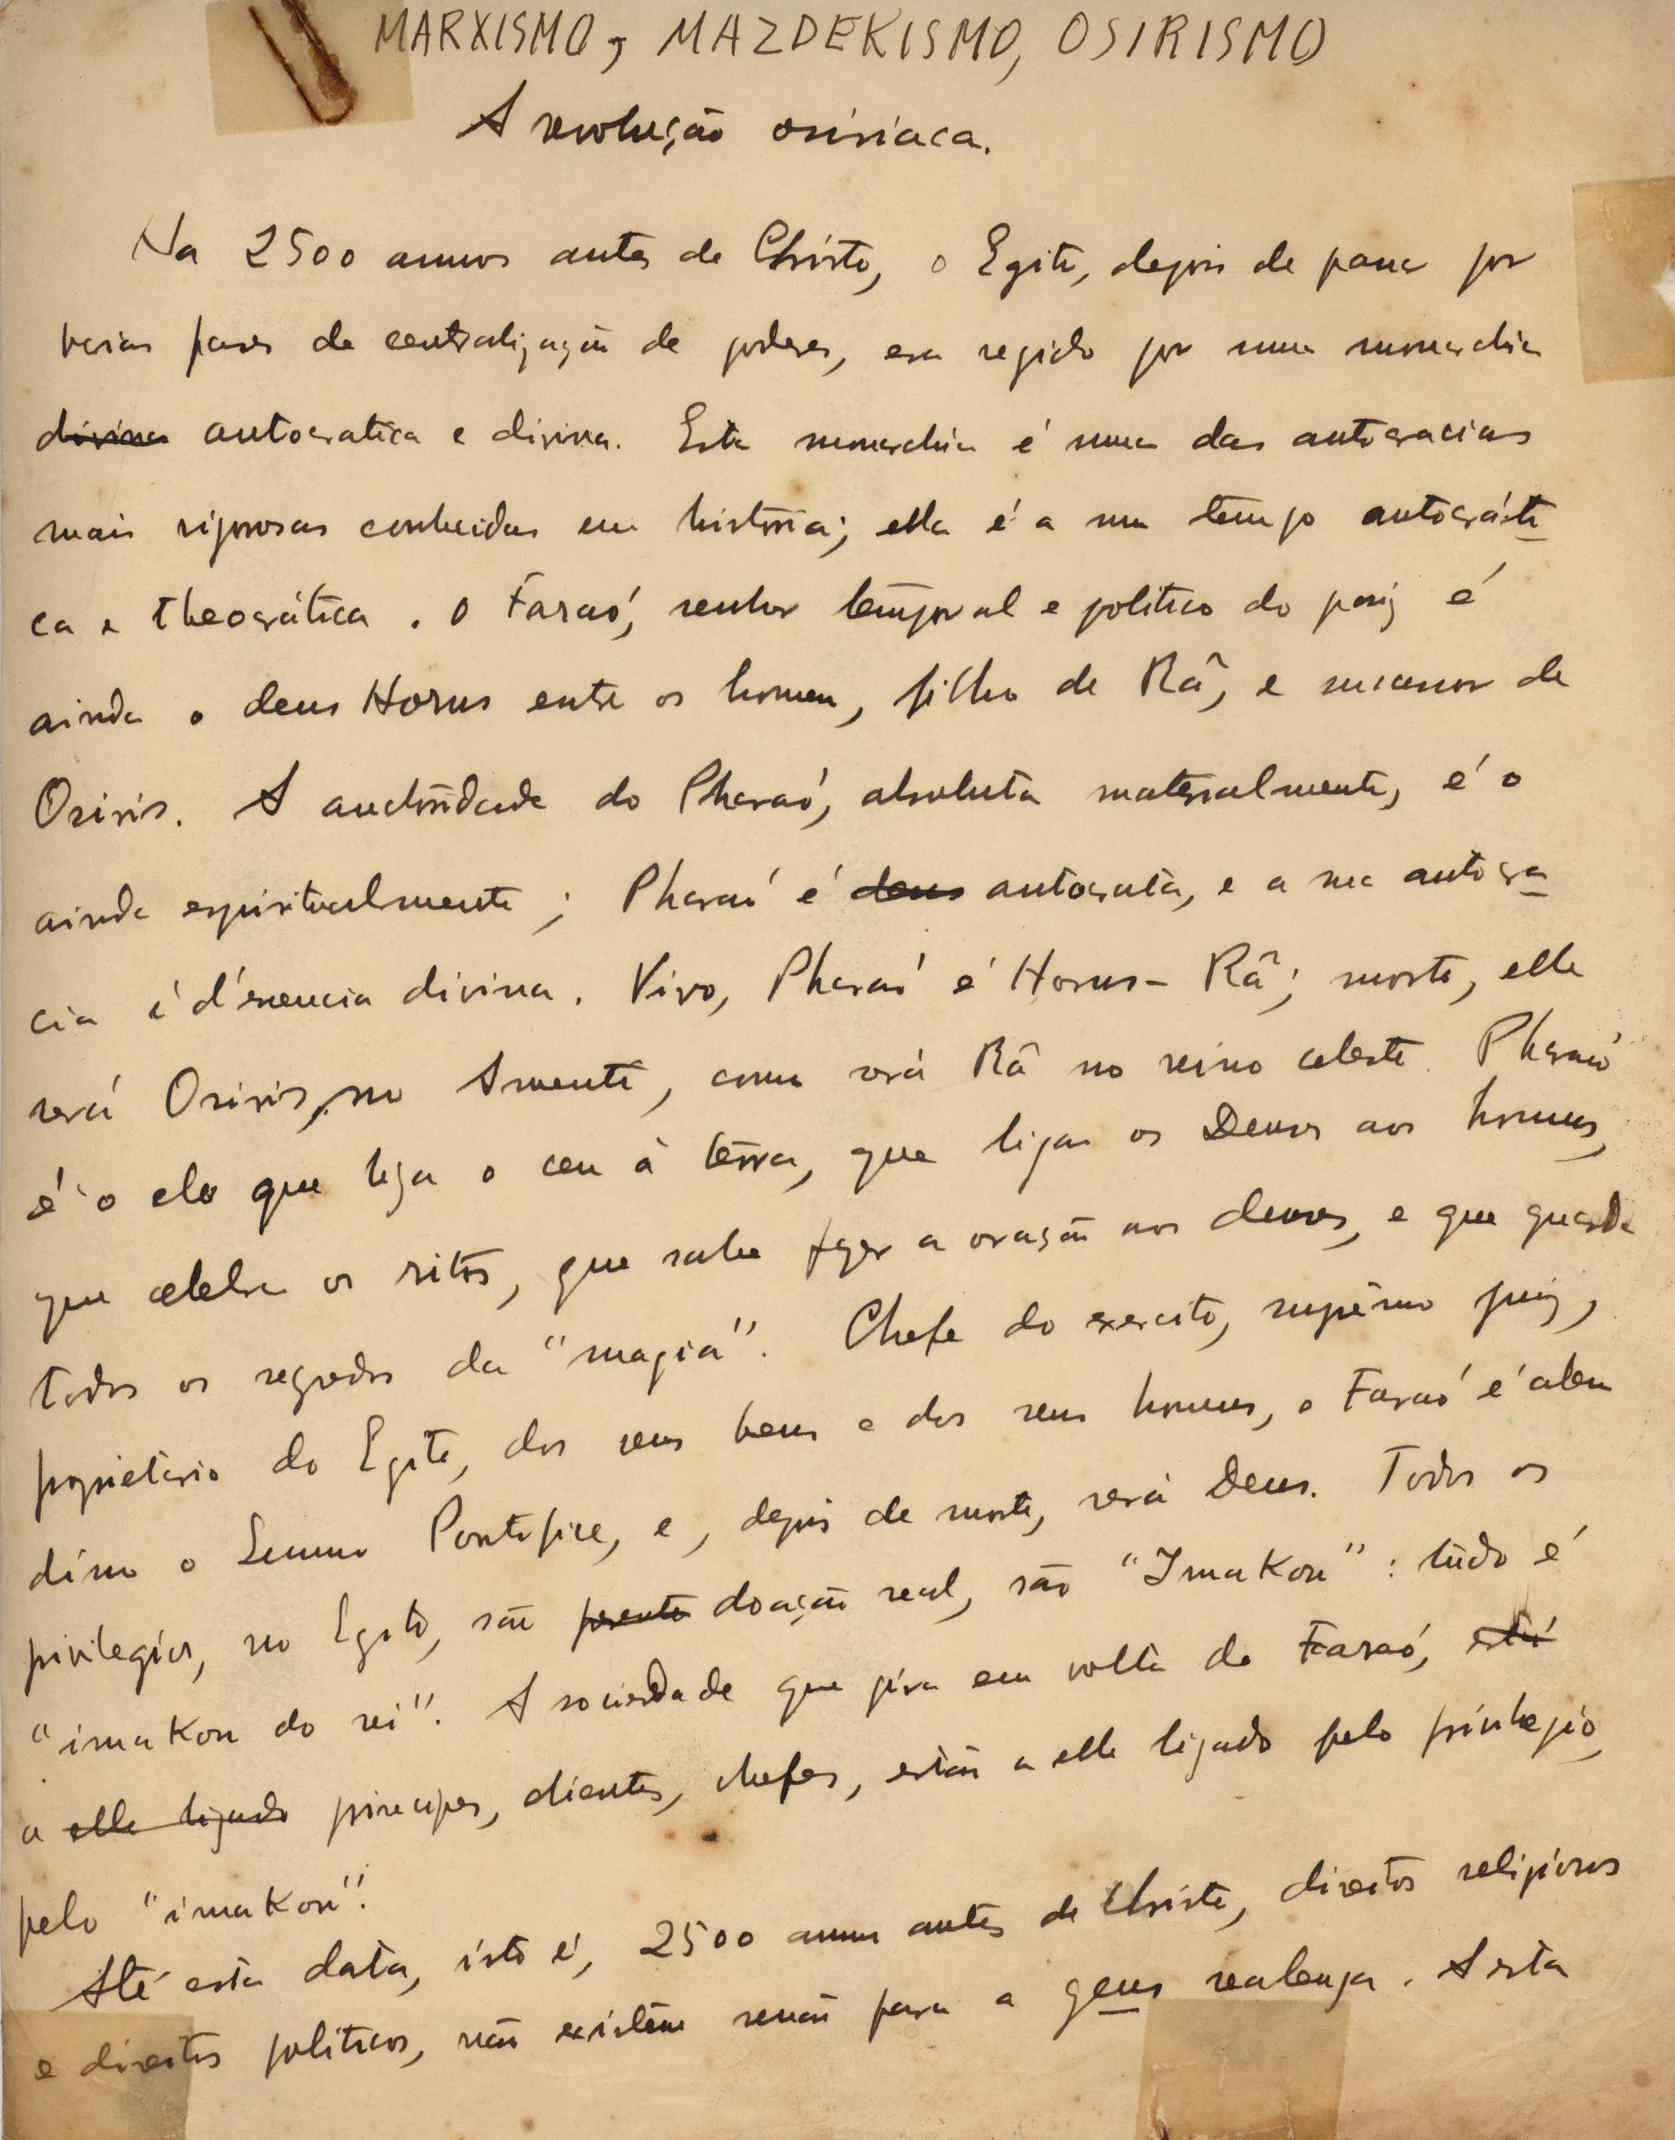 MARXISMO, MAZDEKISMO, OSIRISMO
A revolução osiriaca.
Na 2500 annos antes de Christo, o Egito, depois de passar por
varias fases de centralização de poderes, era regido por uma monarchia
divina autocratica e divina. Esta monarchia é uma das autocracias
mais rigorosas conhecidas em história; ella é a um tempo autocráti
ca e theocrática. O Faraó, senhor temporal e politico do paiz é
ainda o deus Horus entre os homens, filho de Râ, e sucessor de
Osiris. A auctoridade do Pharaó, absoluta materialmente, é o
ainda espiritualmente; Pharaó é deus autocrata, e a sua autocra
cia é d'essencia divina. Vivo, Pharaó é Horus-Râ; morto, elle
será Osiris, no Amenti, como será Râ no reino celeste. Pharaó
é o elo que liga o ceu à terra, que liga os Deuses aos homens,
que celebra os ritos, que sabe fazer a oração aos deuses, e que guarda
todos os segredos da "magia". Chefe do exercito, supremo juiz,
proprietario do Egito, dos seus bens e dos seus homens, o Faraó é alem
disso o Summo Pontifice, e, depois de morto, será Deus. Todos os
privilegios, no Egito, são doação real, são "Imakou": tudo é
"imakou do rei". A sociedade que gira em volta do Faraó, está
a elle ligada principes, clientes, chefes, estão a elle ligado pelo privilegio,
pelo "imakou".
Até esta data, isto é, 2500 annos antes de Christo, direitos religiosos
e direitos politicos, não existem senão para a gens realenga. A esta